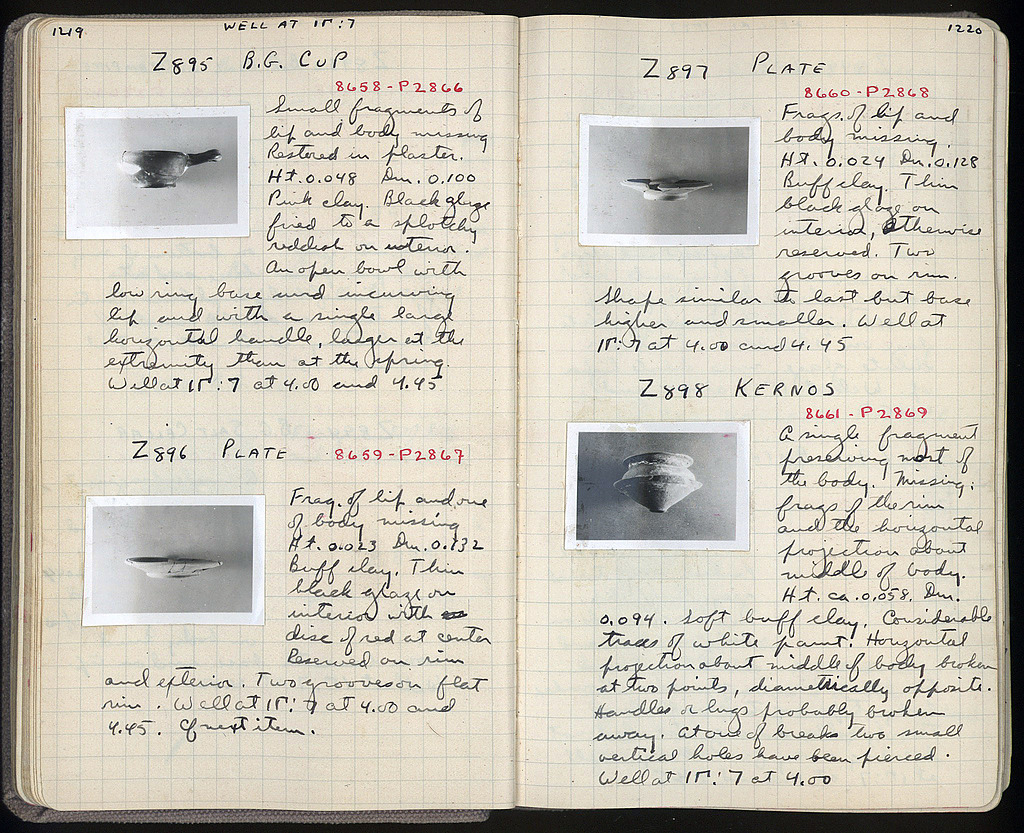 1219
WELL AT ΙΓ : 7
Z895 B.G. CUP
8658 - P2866
Small fragments of
lip and body missing
Restored in plaster.
Ht. 0.048 Dm. 0.100
Pink clay. Black glaze
fired to a splotchy
reddish on exterior.
An open bowl with
low ring base and incurving
lip and with a single large
horizontal handle, larger at the
extremity than at the spring.
Well at ΙΓ : 7 at 4.00 and 4.45
Z896 PLATE 8659 - P2867
Frag. of lip and one
of body missing
Ht. 0.023 Dm. 0.132
Buff clay. Thin
black glaze on
interior with
disc of red at center
Reserved on rim
and exterior. Two grooves on flat
rim. Well at ΙΓ : 7 at 4.00 and
4.45. Cf next item.
1220
Z897 PLATE
8660 - P2868
Frags. of lip and
body missing.
Ht. 0.024 Dm. 0.128
Buff clay. Thin
black glaze on
interior, otherwise
reserved. Two
grooves on rim.
Shape similar to last but base
higher and smaller. Well at
ΙΓ : 7 at 4.00 and 4.45
Z898 KERNOS
8661 - P2869
A single fragment
preserving most of
the body. Missing:
frags of the rim
and the horizontal
projection about
middle of body.
Ht. ca. 0.058. Dm.
0.094. Soft buff clay. Considerable
traces of white paint. Horizontal
projection about middle of body broken
at two points, diametrically opposite.
Handles or lugs probably broken
away. At one of breaks two small
vertical holes have been pierced.
Well at ΙΓ : 7 at 4.00